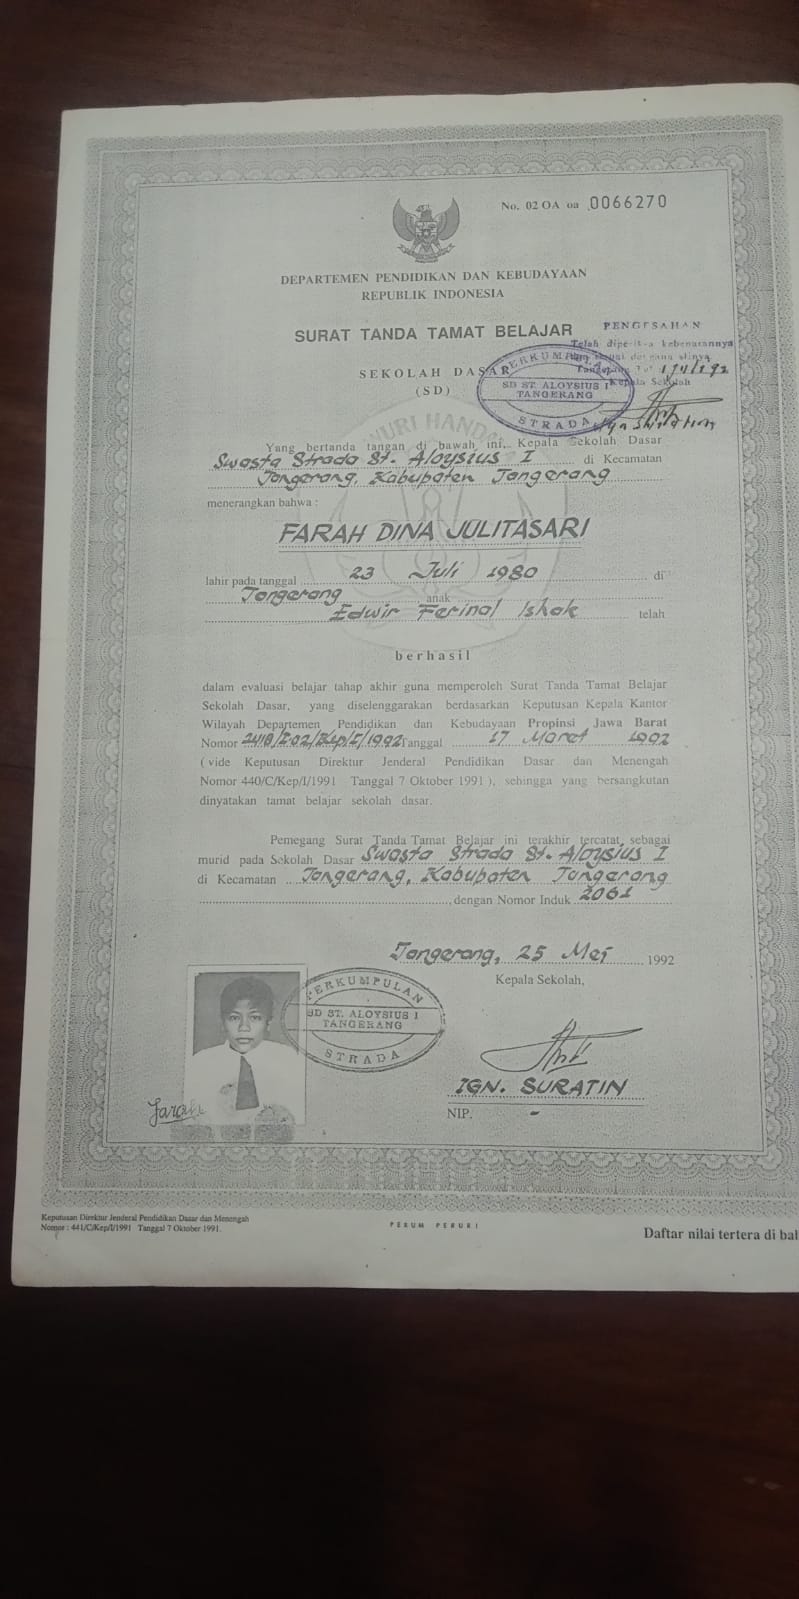 No. 02 OA oa 0066270
DEPARTEMEN PENDIDIKAN DAN KEBUDAYAAN
REPUBLIK INDONESIA
SURAT TANDA TAMAT BELAJAR
PENGESAHAN
Telah diperiksa kebenarannya
SEKOLAH DASAR
Kepala Sekolah
(SD)
PERKUMPULAN
SD ST. ALOYSIUS I
TANGERANG
STRADA
Yang bertanda tangan di bawah ini, Kepala Sekolah Dasar
Swasta Strada St. Aloysius I di Kecamatan
Tangerang, Kabupaten Tangerang
menerangkan bahwa :
FARAH DINA JULITASARI
lahir pada tanggal 23 Juli 1980 di
Tangerang anak
Edwir Ferinal Ishak telah
berhasil
dalam evaluasi belajar tahap akhir guna memperoleh Surat Tanda Tamat Belajar
Sekolah Dasar, yang diselenggarakan berdasarkan Keputusan Kepala Kantor
Wilayah Departemen Pendidikan dan Kebudayaan Propinsi Jawa Barat
Nomor 2418/I.02/Kep/I/1992 Tanggal 17 Maret 1992
( vide Keputusan Direktur Jenderal Pendidikan Dasar dan Menengah
Nomor 440/C/Kep/I/1991 Tanggal 7 Oktober 1991 ), sehingga yang bersangkutan
dinyatakan tamat belajar sekolah dasar.
Pemegang Surat Tanda Tamat Belajar ini terakhir tercatat sebagai
murid pada Sekolah Dasar Swasta Strada St. Aloysius I
di Kecamatan Tangerang, Kabupaten Tangerang
, dengan Nomor Induk 2061
Tangerang, 25 Mei 1992
Kepala Sekolah,
PERKUMPULAN
SD ST. ALOYSIUS I
TANGERANG
STRADA
IGN. SURATIN
NIP. -
Keputusan Direktur Jenderal Pendidikan Dasar dan Menengah
Nomor : 441/C/Kep/I/1991 Tanggal 7 Oktober 1991.
PERUM PERURI
Daftar nilai tertera di bal